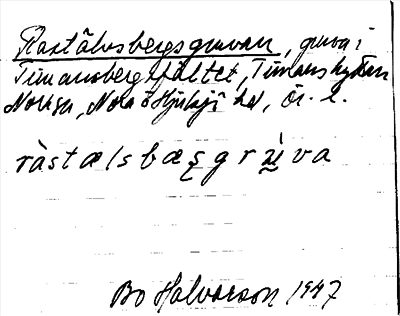 Rastälvsbergsgruvan, gruva i
Timansbergsfältet, Timanshyttan
Norrga, Nora o Hjulsjö hd, Ör. l.
ràstælsbæşgrùva
Bo Halvarson 1947